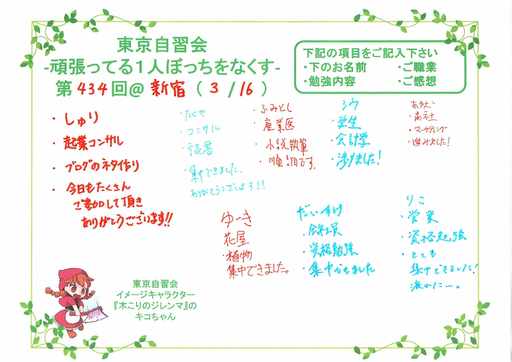 東京自習会
-頑張ってる1人ぼっちをなくす-
第434回@新宿(3/16)
下記の項目をご記入下さい
・下のお名前 ・ご職業
・勉強内容 ・ご感想
・しゅり
・起業コンサル
・ブログのネタ作り
・今日もたくさん
ご参加して頂き
ありがとうございます!!
・コンサル
・読書
・集中できました。
ありがとうございます!!
・ふみとし
・産業医
・小説執筆
・学生
・会計学
・進みました!
ゆーき
花屋
・植物
集中できました。
だいすけ
・資格勉強
・集中できました
りこ
・営業
・資格勉強
・とても
集中できました!
東京自習会
イメージキャラクター
『木こりのジレンマ』の
キコちゃん